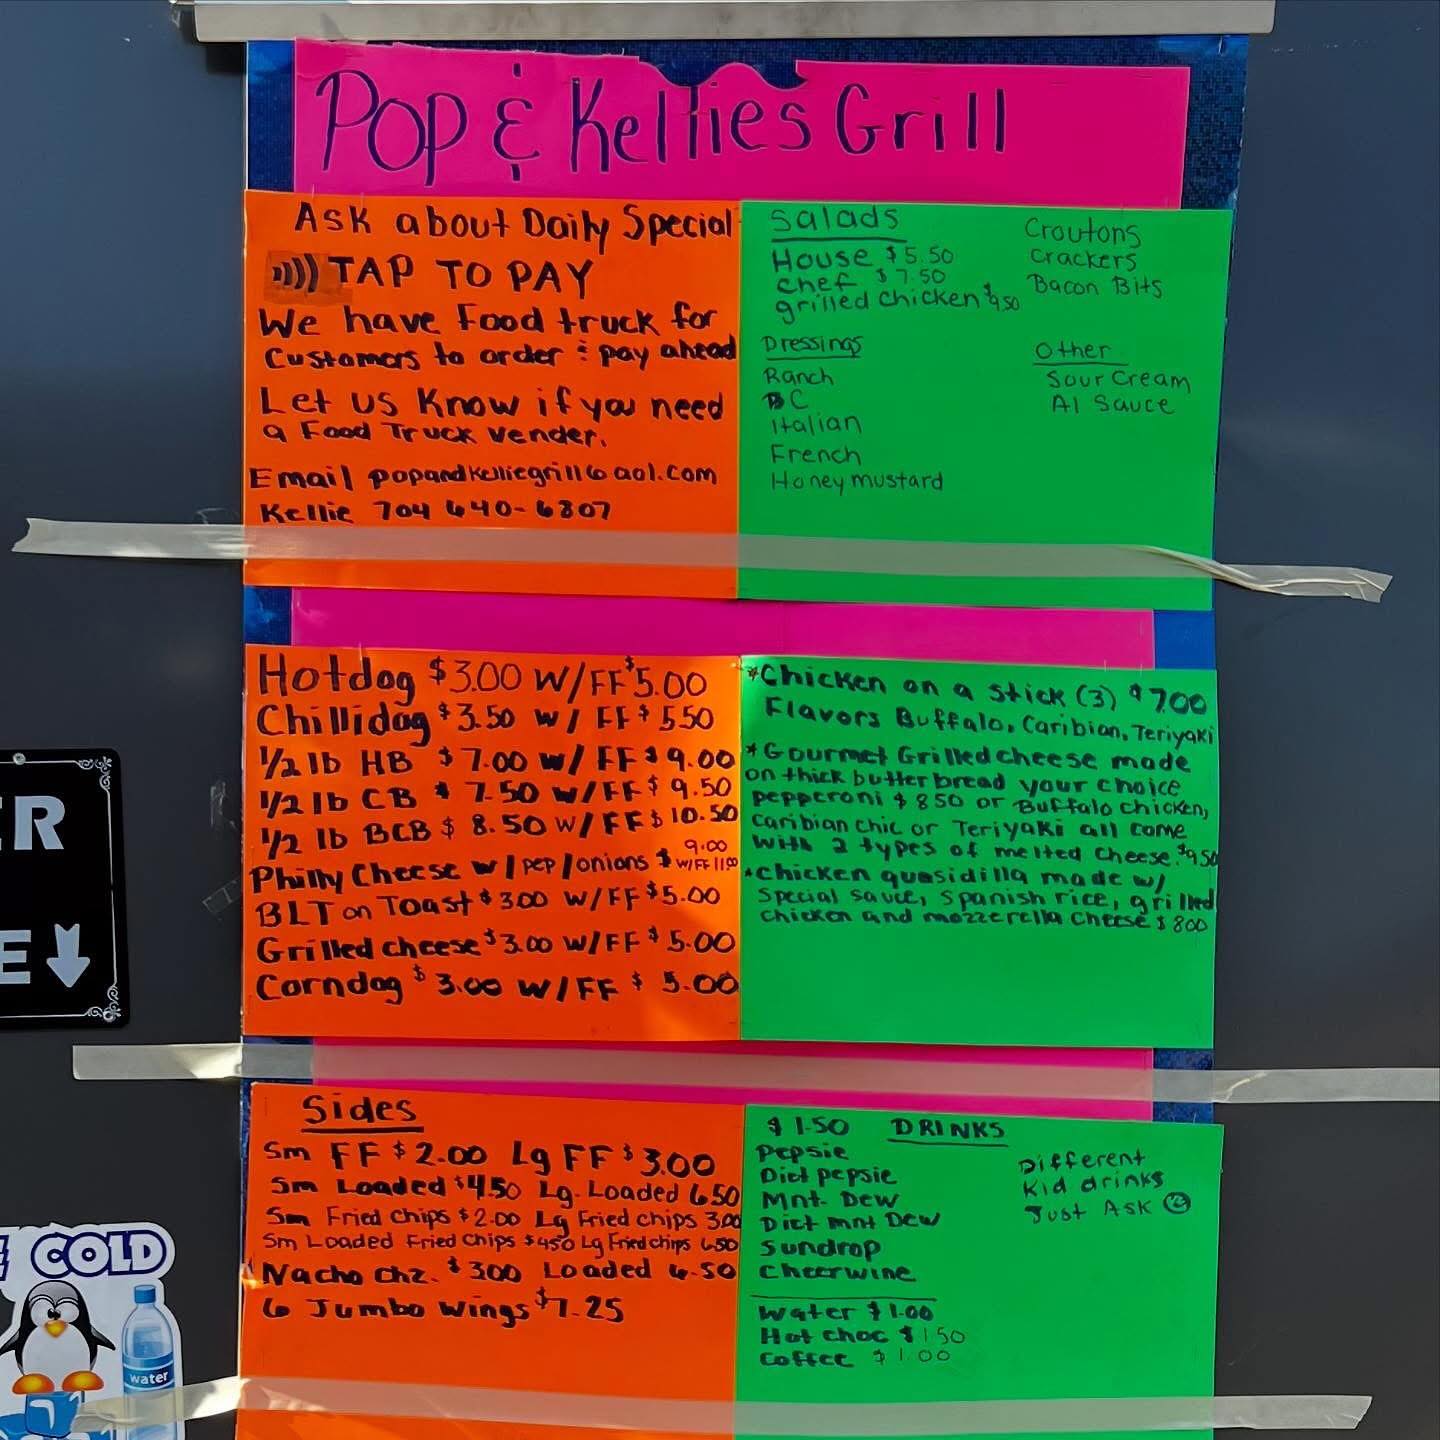 Pop & Kellies Grill
Ask about Daily Special
TAP TO PAY
We have Food truck for
Customers to order & pay ahead
Let us Know if you need
a Food Truck Vender.
Email popandkelliegrill@aol.com
Kellie 704 640-6807
Salads
House $5.50
chef $7.50
grilled chicken $9.50
Croutons
Crackers
Bacon Bits
Dressings
Ranch
BC
Italian
French
Honey mustard
Other
Sour Cream
A1 Sauce
Hotdog $3.00 W/FF $5.00
Chillidog $3.50 w/ FF $5.50
1/2 lb HB $7.00 w/ FF $9.00
1/2 lb CB $7.50 w/FF $9.50
1/2 lb BCB $8.50 w/FF $10.50
Philly Cheese w/ pep/onions $9.00 w/FF 11.00
BLT on Toast $3.00 w/FF $5.00
Grilled cheese $3.00 w/FF $5.00
Corndog $3.00 w/FF $5.00
*Chicken on a stick (3) $7.00
Flavors Buffalo, Caribian, Teriyaki
*Gourmet Grilled cheese made
on thick butter bread your choice
pepperoni $8.50 or Buffalo chicken,
caribian chic or Teriyaki all come
with 2 types of melted cheese $9.50
*chicken quasidilla made w/
special sauce, spanish rice, grilled
chicken and mozzerella cheese $8.00
Sides
Sm FF $2.00 Lg FF $3.00
Sm Loaded $4.50 Lg. Loaded 6.50
Sm Fried chips $2.00 Lg Fried chips 3.00
Sm Loaded Fried Chips $4.50 Lg Fried chips 6.50
Nacho chz. $3.00 Loaded 6.50
6 Jumbo wings $7.25
$1.50 DRINKS
Pepsie
Diet pepsie
Mnt. Dew
Diet mnt Dew
Sundrop
Cheerwine
Different
Kid drinks
Just Ask
Water $1.00
Hot choc $1.50
Coffee $1.00
ER
E
E COLD
water